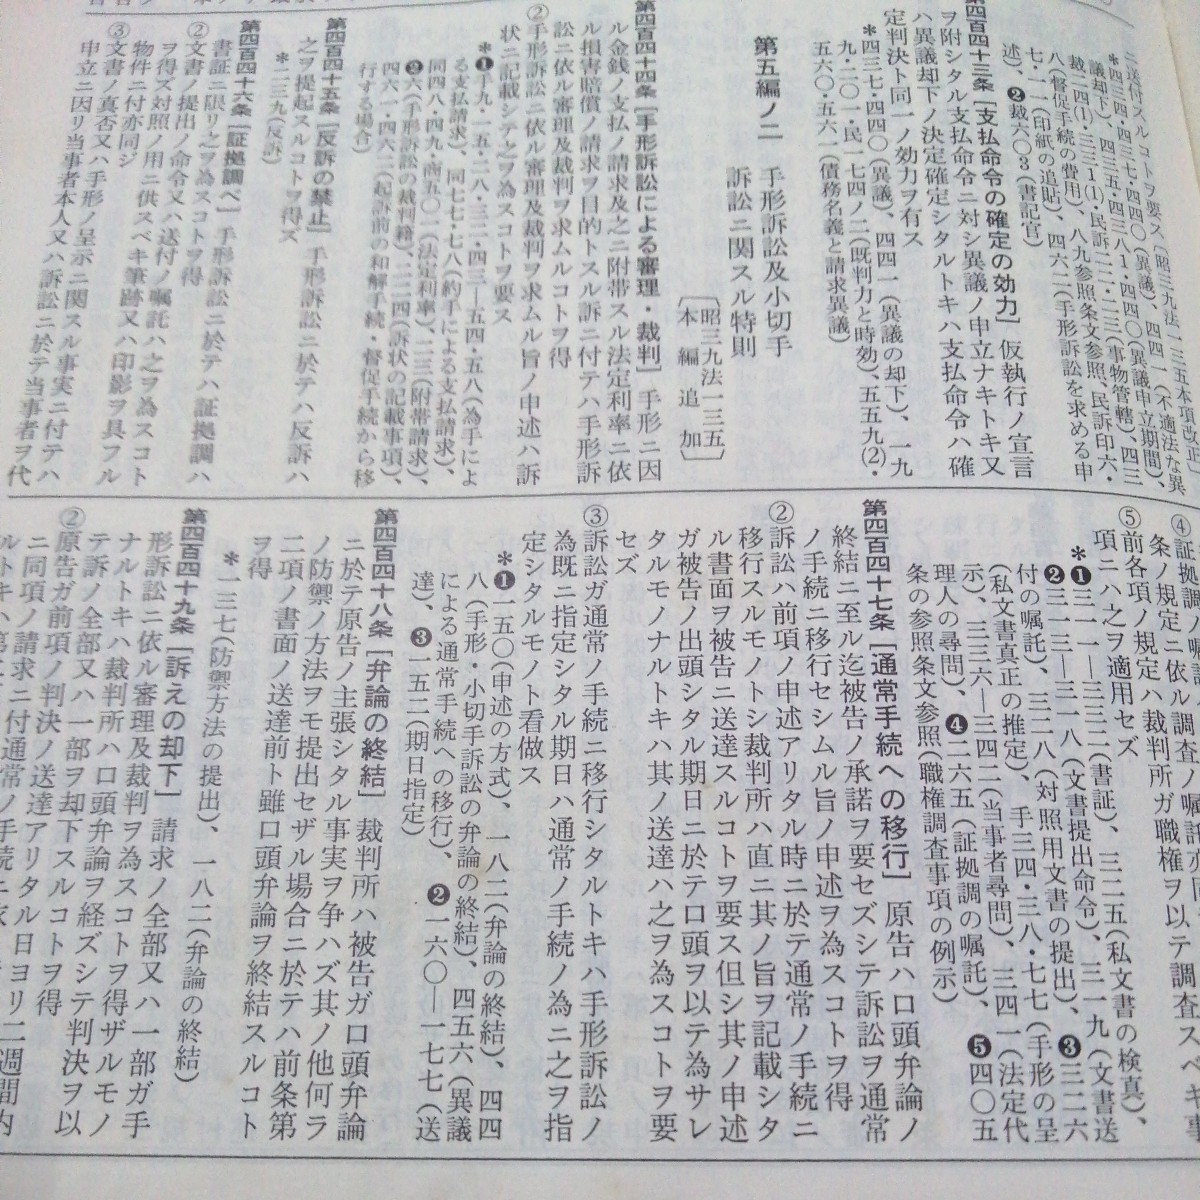 ニ送付スルコトヲ要ス〔昭三九法一三五本項改正〕
第四百四十三条［支払命令の確定の効力］仮執行ノ宣言
ヲ附シタル支払命令ニ対シ異議ノ申立ナキトキ又
ハ異議却下ノ決定確定シタルトキハ支払命令ハ確
定判決ト同一ノ効力ヲ有ス
＊四三七・四四〇(異議)、四四一(異議の却下)、一九
九・二〇一・民一七四ノ二(既判力と時効)、五五九⑵・
五六〇・五六一(債務名義と請求異議)
第五編ノ二　手形訴訟及小切手
訴訟ニ関スル特則
〔昭三九法一三五
本編追加〕
第四百四十四条［手形訴訟による審理・裁判］手形ニ因
ル金銭ノ支払ノ請求及之ニ附帯スル法定利率ニ依
ル損害賠償ノ請求ヲ目的トスル訴ニ付テハ手形訴
訟ニ依ル審理及裁判ヲ求ムルコトヲ得
②手形訴訟ニ依ル審理及裁判ヲ求ムル旨ノ申述ハ訴
状ニ記載シテ之ヲ為スコトヲ要ス
＊❶手九・一五・二八・三二・四三―五四・五八(為手によ
る支払請求)、同七七・七八(約手による支払請求)、
同四八・四九・商五〇一(法定利率)、二三(附帯請求)、
❷六(手形訴訟の裁判籍)、二二四(訴状の記載事項)、
四六一・四六二(起訴前の和解手続・督促手続から移
行する場合)
第四百四十五条［反訴の禁止］手形訴訟ニ於テハ反訴ハ
之ヲ提起スルコトヲ得ズ
＊二三九(反訴)
第四百四十六条［証拠調べ］手形訴訟ニ於テハ証拠調ハ
書証ニ限リ之ヲ為スコトヲ得
②文書ノ提出ノ命令又ハ送付ノ嘱託ハ之ヲ為スコト
ヲ得ズ対照ノ用ニ供スベキ筆跡又ハ印影ヲ具フル
物件ニ付亦同ジ
③文書ノ真否又ハ手形ノ呈示ニ関スル事実ニ付テハ
申立ニ因リ当事者本人又ハ訴訟ニ於テ当事者ヲ代
条ノ規定ニ依ル調査ノ嘱託亦同ジ
⑤前各項ノ規定ハ裁判所ガ職権ヲ以テ調査スベキ事
項ニハ之ヲ適用セズ
＊❶三一一―三三二(書証)、三二五(私文書の検真)、
❷三一三―三一八(文書提出命令)、三一九(文書送
付の嘱託)、三二八(対照用文書の提出)、❸三二六
(私文書真正の推定)、手三四・三八・七七(手形の呈
示)、三三六―三四二(当事者尋問)、三四一(法定代
理人の尋問)、❹二六五(証拠調の嘱託)、❺四〇五
条の参照条文参照(職権調査事項の例示)
第四百四十七条［通常手続への移行］原告ハ口頭弁論ノ
終結ニ至ル迄被告ノ承諾ヲ要セズシテ訴訟ヲ通常
ノ手続ニ移行セシムル旨ノ申述ヲ為スコトヲ得
②訴訟ハ前項ノ申述アリタル時ニ於テ通常ノ手続ニ
移行スルモノトシ裁判所ハ直ニ其ノ旨ヲ記載シタ
ル書面ヲ被告ニ送達スルコトヲ要ス但シ其ノ申述
ガ被告ノ出頭シタル期日ニ於テ口頭ヲ以テ為サレ
タルモノナルトキハ其ノ送達ハ之ヲ為スコトヲ要
セズ
③訴訟ガ通常ノ手続ニ移行シタルトキハ手形訴訟ノ
為既ニ指定シタル期日ハ通常ノ手続ノ為ニ之ヲ指
定シタルモノト看做ス
＊❶一五〇(申述の方式)、一八二(弁論の終結)、四四
八(手形・小切手訴訟の弁論の終結)、四五六(異議
による通常手続への移行)、❷一六〇―一七七(送
達)、❸一五二(期日指定)
第四百四十八条［弁論の終結］裁判所ハ被告ガ口頭弁論
ニ於テ原告ノ主張シタル事実ヲ争ハズ其ノ他何ラ
ノ防禦ノ方法ヲモ提出セザル場合ニ於テハ前条第
二項ノ書面ノ送達前ト雖口頭弁論ヲ終結スルコト
ヲ得
＊一三七(防禦方法の提出)、一八二(弁論の終結)
第四百四十九条［訴えの却下］請求ノ全部又ハ一部ガ手
形訴訟ニ依ル審理及裁判ヲ為スコトヲ得ザルモノ
ナルトキハ裁判所ハ口頭弁論ヲ経ズシテ判決ヲ以
テ訴ノ全部又ハ一部ヲ却下スルコトヲ得
②原告ガ前項ノ判決ノ送達アリタル日ヨリ二週間内
ニ同項ノ請求ニ付通常ノ手続ニ依